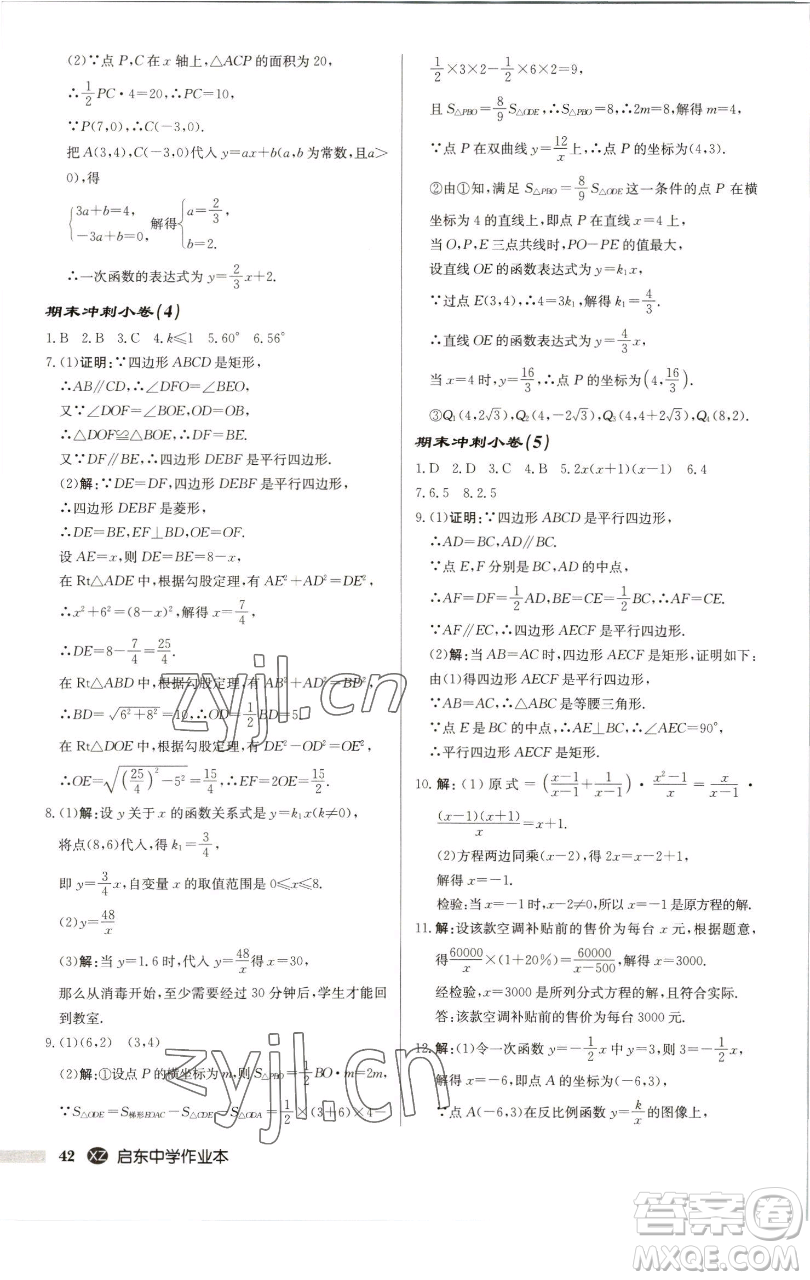 (2)∵点 P,C 在 x 轴上,△ACP 的面积为 20,
∴1/2 PC·4=20,∴PC=10,
∵P(7,0),∴C(-3,0).
把 A(3,4),C(-3,0)代入 y=ax+b(a,b 为常数,且a>
0),得
{3a+b=4, -3a+b=0, 解得{a=2/3, b=2.
∴一次函数的表达式为 y=2/3 x+2.
期末冲刺小卷(4)
1.B 2.B 3.C 4.k⩽1 5.60° 6.56°
7.(1)证明:∵四边形 ABCD 是矩形,
∴AB∥CD,∴∠DFO=∠BEO,
又∵∠DOF=∠BOE,OD=OB,
∴△DOF≌△BOE,∴DF=BE.
又∵DF∥BE,∴四边形 DEBF 是平行四边形.
(2)解:∵DE=DF,四边形 DEBF 是平行四边形,
∴四边形 DEBF 是菱形,
∴DE=BE,EF⊥BD,OE=OF.
设 AE=x,则 DE=BE=8-x,
在 Rt△ADE 中,根据勾股定理,有 AE²+AD²=DE²,
∴x²+6²=(8-x)²,解得 x=7/4,
∴DE=8-7/4=25/4.
在 Rt△ABD 中,根据勾股定理,有 AB²+AD²=BD²,
∴BD=√(6²+8²)=10,∴OD=1/2 BD=5.
在 Rt△DOE 中,根据勾股定理,有 DE²-OD²=OE²,
∴OE=√((25/4)²-5²)=15/4,∴EF=2OE=15/2.
8.(1)解:设 y 关于 x 的函数关系式是 y=k₁x(k≠0),
将点(8,6)代入,得 k₁=3/4,
即 y=3/4 x,自变量 x 的取值范围是 0⩽x⩽8.
(2)y=48/x
(3)解:当 y=1.6 时,代入 y=48/x 得 x=30,
那么从消毒开始,至少需要经过 30 分钟后,学生才能回
到教室.
9.(1)(6,2) (3,4)
(2)解:①设点 P 的横坐标为 m,则 S△PBO=1/2 BO·m=2m,
∵S△ODE=S梯形EOAC-S△CDE-S△ODA=1/2×(3+6)×4-
42 XZ 启东中学作业本
1/2×3×2-1/2×6×2=9,
且 S△PBO=8/9 S△ODE,∴S△PBO=8,∴2m=8,解得 m=4,
∵点 P 在双曲线 y=12/x 上,∴点 P 的坐标为(4,3).
②由①知,满足 S△PBO=8/9 S△ODE 这一条件的点 P 在横
坐标为 4 的直线上,即点 P 在直线 x=4 上,
当 O,P,E 三点共线时,PO-PE 的值最大,
设直线 OE 的函数表达式为 y=k₁x,
∵过点 E(3,4),∴3k₁=4,解得 k₁=4/3.
∴直线 OE 的函数表达式为 y=4/3 x,
当 x=4 时,y=16/3,∴点 P 的坐标为(4,16/3).
③Q₁(4,2√3),Q₂(4,-2√3),Q₃(4,4+2√3),Q₄(8,2).
期末冲刺小卷(5)
1.D 2.D 3.C 4.B 5.2x(x+1)(x-1) 6.4
7.6.5 8.2.5
9.(1)证明:∵四边形 ABCD 是平行四边形,
∴AD=BC,AD∥BC.
∵点 E,F 分别是 BC,AD 的中点,
∴AF=DF=1/2 AD,BE=CE=1/2 BC,∴AF=CE.
∵AF∥EC,∴四边形 AECF 是平行四边形.
(2)解:当 AB=AC 时,四边形 AECF 是矩形,证明如下:
由(1)得四边形 AECF 是平行四边形,
∵AB=AC,∴△ABC 是等腰三角形.
∵点 E 是 BC 的中点,∴AE⊥BC,∴∠AEC=90°,
∴平行四边形 AECF 是矩形.
10.解:(1)原式=((x-1)/(x-1)+1/(x-1))·(x²-1)/x=x/(x-1)·
(x-1)(x+1)/x=x+1.
(2)方程两边同乘(x-2),得 2x=x-2+1,
解得 x=-1.
检验:当 x=-1 时,x-2≠0,所以 x=-1 是原方程的解.
11.解:设该款空调补贴前的售价为每台 x 元,根据题意,
得60000/x×(1+20%)=60000/(x-500),解得 x=3000.
经检验,x=3000 是所列分式方程的解,且符合实际.
答:该款空调补贴前的售价为每台 3000 元.
12.解:(1)令一次函数 y=-1/2 x 中 y=3,则 3=-1/2 x,
解得 x=-6,∴点 A 的坐标为(-6,3).
∵点 A(-6,3)在反比例函数 y=k/x 的图像上,
zyjl.cn
zyjl.cn
答案圈
MXQE.COM